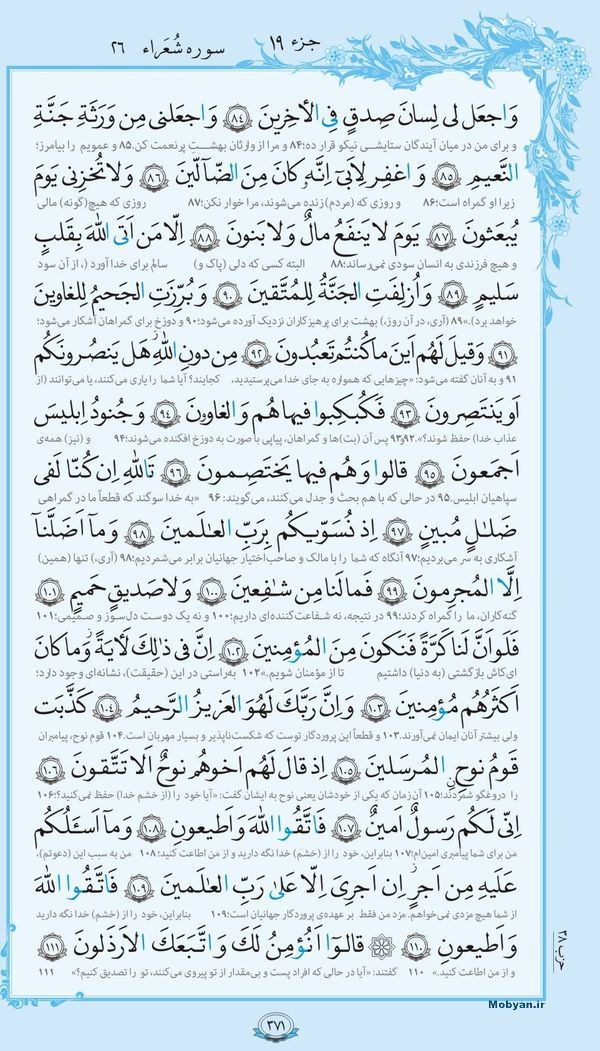 جزء ۱۹ سوره شُعَراء ۲۶
وَاجعَل لی لِسانَ صِدقٍ فِی الأخِرینَ ﴿۸۴﴾ وَاجعَلنی مِن وَرَثَةِ جَنَّةِ
و برای من در میان آیندگان ستایشی نیکو قرار ده؛۸۴ و مرا از وارثان بهشتِ پرنعمت کن.۸۵ و عمویم را بیامرز؛
النَّعیمِ ﴿۸۵﴾ وَاغفِر لِاَبی اِنَّهُ کانَ مِنَ الضّآلّینَ ﴿۸۶﴾ وَلا تُخزِنی یَومَ
زیرا او گمراه است؛۸۶ و روزی که (مردم) زنده می‌شوند، مرا خوار نکن؛۸۷ روزی که هیچ (گونه) مالی
یُبعَثونَ ﴿۸۷﴾ یَومَ لا یَنفَعُ مالٌ وَلا بَنونَ ﴿۸۸﴾ اِلّا مَن اَتَی اللهَ بِقَلبٍ
و هیچ فرزندی به انسان سودی نمی‌رساند؛۸۸ البته کسی که دلی (پاک و) سالم برای خدا آورد (، از آن سود
سَلیمٍ ﴿۸۹﴾ وَاُزلِفَتِ الجَنَّةُ لِلمُتَّقینَ ﴿۹۰﴾ وَبُرِّزَتِ الجَحیمُ لِلغاوینَ
خواهد برد).»۸۹ (آری، در آن روز،) بهشت برای پرهیزکاران نزدیک آورده می‌شود؛۹۰ و دوزخ برای گمراهان آشکار می‌شود؛
﴿۹۱﴾ وَقیلَ لَهُم اَینَ ما کُنتُم تَعبُدونَ ﴿۹۲﴾ مِن دونِ اللهِ هَل یَنصُرونَکُم
۹۱ و به آنان گفته می‌شود: «چیزهایی که همواره به جای خدا می‌پرستیدید، کجایند؟ آیا شما را یاری می‌کنند، یا می‌توانند (از
اَو یَنتَصِرونَ ﴿۹۳﴾ فَکُبکِبوا فیها هُم وَالغاوونَ ﴿۹۴﴾ وَجُنودُ اِبلیسَ
عذاب خدا) حفظ شوند؟».۹۲و۹۳ پس آن (بت)ها و گمراهان، پیاپی با صورت به دوزخ افکنده می‌شوند؛۹۴ و (نیز) همه‌ی
اَجمَعونَ ﴿۹۵﴾ قالوا وَهُم فیها یَختَصِمونَ ﴿۹۶﴾ تَاللهِ اِن کُنّا لَفی
سپاهیان ابلیس.۹۵ در حالی که با هم بحث و جدل می‌کنند، می‌گویند: ۹۶ «به خدا سوگند که قطعاً ما در گمراهی
ضَلالٍ مُبینٍ ﴿۹۷﴾ اِذ نُسَوّیکُم بِرَبِّ العالَمینَ ﴿۹۸﴾ وَما اَضَلَّنآ
آشکاری به سر می‌بردیم؛۹۷ آنگاه که شما را با مالک و صاحب‌اختیار جهانیان برابر می‌شمردیم؛۹۸ (آری،) تنها (همین)
اِلَّا المُجرِمونَ ﴿۹۹﴾ فَما لَنا مِن شافِعینَ ﴿۱۰۰﴾ وَلا صَدیقٍ حَمیمٍ ﴿۱۰۱﴾
گنه‌کاران، ما را گمراه کردند؛۹۹ در نتیجه، نه شفاعت‌کننده‌ای داریم؛۱۰۰ و نه یک دوست دل‌سوز و صمیمی؛۱۰۱
فَلَو اَنَّ لَنا کَرَّةً فَنَکونَ مِنَ المُؤمِنینَ ﴿۱۰۲﴾ اِنَّ فی ذٰلِکَ لَأیَةً وَما کانَ
ای‌کاش بازگشتی (به دنیا) داشتیم تا از مؤمنان شویم.»۱۰۲ به‌راستی در این (حقیقت)، نشانه‌ای وجود دارد؛
اَکثَرُهُم مُؤمِنینَ ﴿۱۰۳﴾ وَاِنَّ رَبَّکَ لَهُوَ العَزیزُ الرَّحیمُ ﴿۱۰۴﴾ کَذَّبَت
ولی بیشتر آنان ایمان نمی‌آورند.۱۰۳ و قطعاً این پروردگار توست که شکست‌ناپذیر و بسیار مهربان است.۱۰۴ قوم نوح، پیامبران
قَومُ نوحٍ المُرسَلینَ ﴿۱۰۵﴾ اِذ قالَ لَهُم اَخوهُم نوحٌ اَلا تَتَّقونَ ﴿۱۰۶﴾
را دروغگو شمردند؛۱۰۵ آن زمان که یکی از خودشان یعنی نوح به ایشان گفت: «آیا خود را (از خشم خدا) حفظ نمی‌کنید؟؛۱۰۶
اِنّی لَکُم رَسولٌ اَمینٌ ﴿۱۰۷﴾ فَاتَّقُوا اللهَ وَاَطیعونِ ﴿۱۰۸﴾ وَمآ اَسئَلُکُم
من برای شما پیامبری امین‌ام؛۱۰۷ بنابراین، خود را از (خشم) خدا نگه دارید و از من اطاعت کنید؛۱۰۸ من به سبب این (دعوتم)،
عَلَیهِ مِن اَجرٍ اِن اَجرِیَ اِلّا عَلیٰ رَبِّ العالَمینَ ﴿۱۰۹﴾ فَاتَّقُوا اللهَ
از شما هیچ مزدی نمی‌خواهم. مزد من فقط بر عهده‌ی پروردگار جهانیان است؛۱۰۹ بنابراین، خود را از (خشم) خدا نگه دارید
وَاَطیعونِ ﴿۱۱۰﴾ قالوٓا اَنُؤمِنُ لَکَ وَاتَّبَعَکَ الاَرذَلونَ ﴿۱۱۱﴾
و از من اطاعت کنید.» ۱۱۰ گفتند: «آیا در حالی که افراد پست و بی‌مقدار از تو پیروی می‌کنند، تو را تصدیق کنیم؟» ۱۱۱
حزب ۳۸
۳۷۱
Mobyan.ir